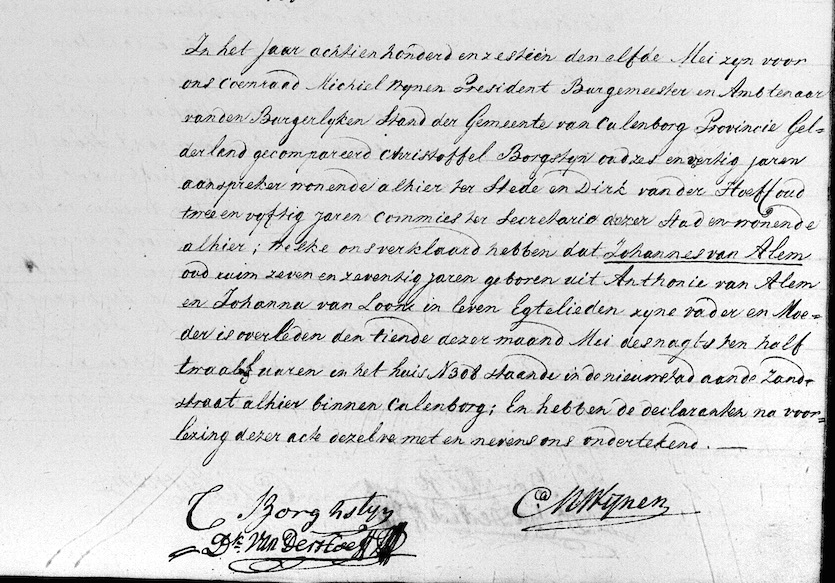 In het jaar achtienhonderd en zestien den elfde Mei zyn voor
ons Coenraad Michiel Wynen President Burgemeester en Ambtenaar
vanden Burgerlyken Stand der Gemeente van Culenborg Provincie Gel=
derland gecompareerd Christoffel Borgstyn oud zes en vertig jaren
aanspreker wonende alhier ter Stede en Dirk van der Hoeff oud
twee en vyftig jaren Commies ter Secretarie dezer Stad en wonende
alhier; welke ons verklaard hebben dat Johannes van Alem
oud ruim zeven en zeventig jaren geboren uit Anthonie van Alem
en Johanna van Loon in leven Egtelieden zyne vader en Moe=
der is overleden den tiende dezer maand Mei desnagts ten half
twaalf uuren in het huis N 308 staande in de nieuwstad aan de Zand=
straat alhier binnen Culenborg; En hebben de declaranten na voor=
lezing dezer acte dezelve met en nevens ons ondertekend. —
C Borghstyn CM Wijnen
Dk. Van Der Hoeff